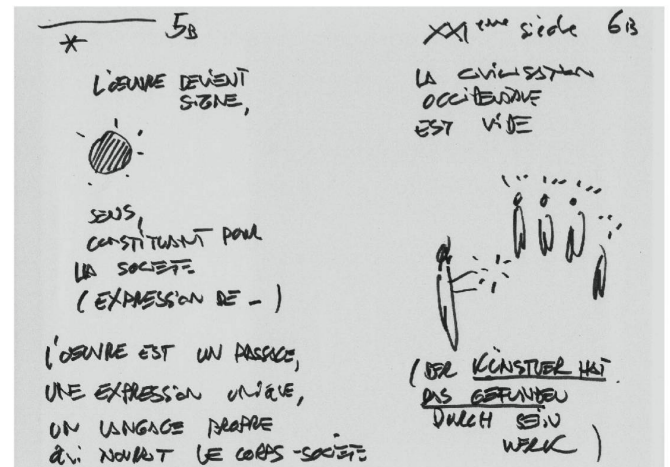 5B
*
L'ŒUVRE DEVIENT
SIGNE,
SENS,
CONSTITUANT POUR
LA SOCIETE
(EXPRESSION DE _)
L'OEUVRE EST UN PASSAGE,
UNE EXPRESSION UNIQUE,
UN LANGAGE PROPRE
QUI NOURRIT LE CORPS-SOCIETE
XXIeme siècle 6B
LA CIVILISATION
OCCIDENTALE
EST VIDE
(DER KÜNSTLER HAT
DAS GEFUNDEN
DURCH SEIN
WERK)